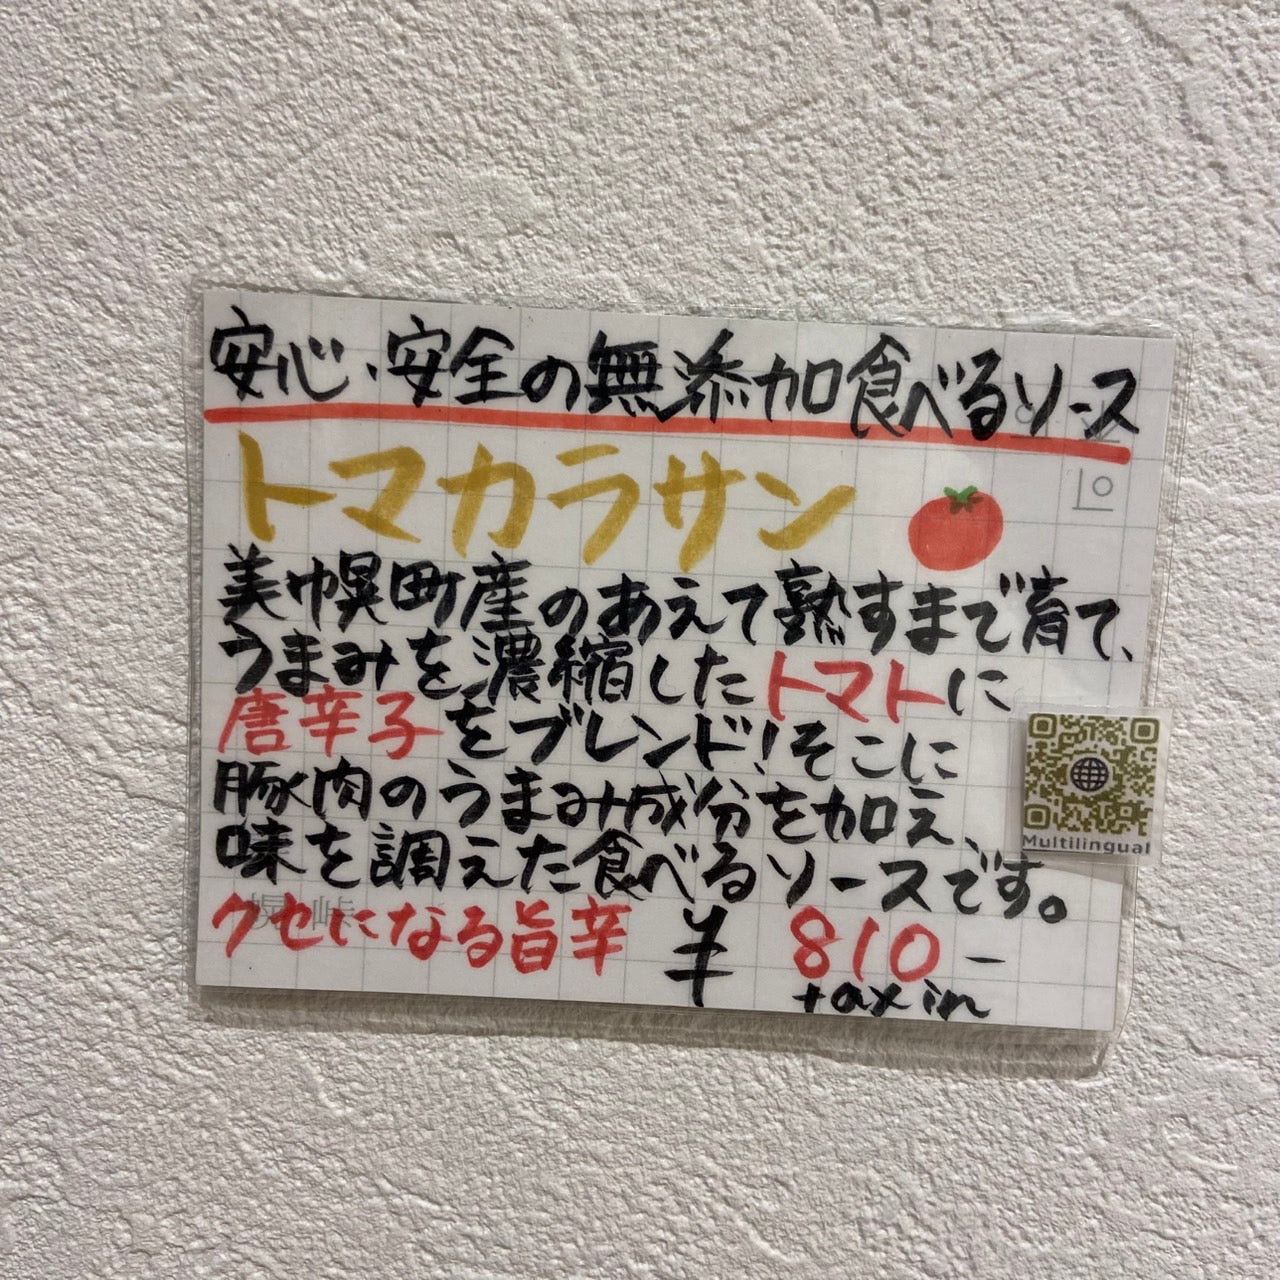 安心、安全の無添加食べるソース
トマカラサン
美幌町産のあえて熟すまで育て、
うまみを濃縮したトマトに
唐辛子をブレンド!そこに
豚肉のうまみ成分を加え、
味を調えた食べるソースです。
クセになる旨辛 ¥810-
tax in
Multilingual